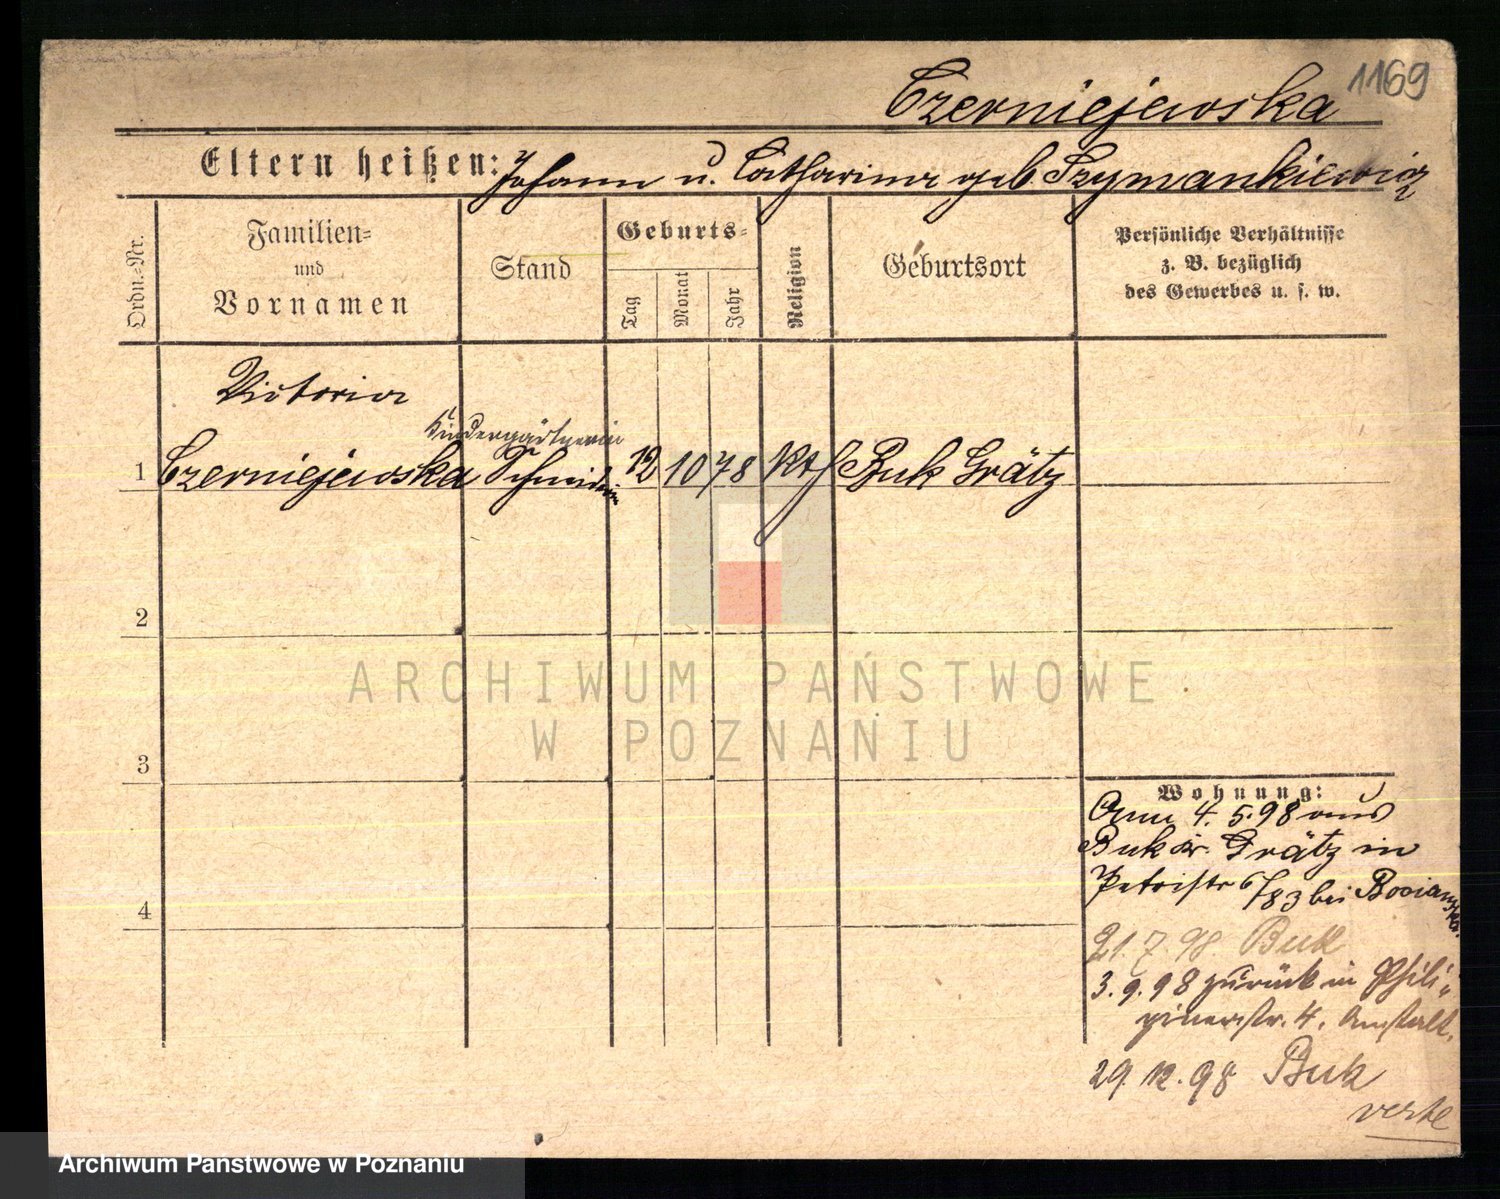 1169
Czerniejewska
Eltern heißen: Johann u. Catharina geb Szymankiewicz
Ordn.-Nr.
Familien-
und
Vornamen
Stand
Geburts-
Tag
Monat
Jahr
Religion
Geburtsort
Persönliche Verhältnisse
z. B. bezüglich
des Gewerbes u. s. w.
Victoria
Kindergärtnerin
1 Czerniejewska Schneiderin 12 10 78 Kth Buk Grätz
2
ARCHIWUM PAŃSTWOWE
W POZNANIU
3
Wohnung:
4. 5. 98 aus
Buk Kr. Grätz in
Petristr 6/83 bei
4
21. 7. 98. Buk
3. 9. 98 zurück in Phili-
pinenstr. 4. Anstalt.
29. 12. 98 Buk
verte
Archiwum Państwowe w Poznaniu